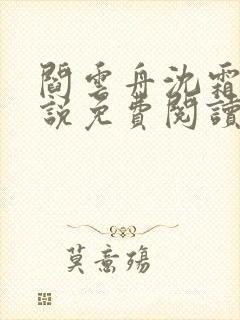 閻雲舟沈霜
說免費閱讀
莫意殤